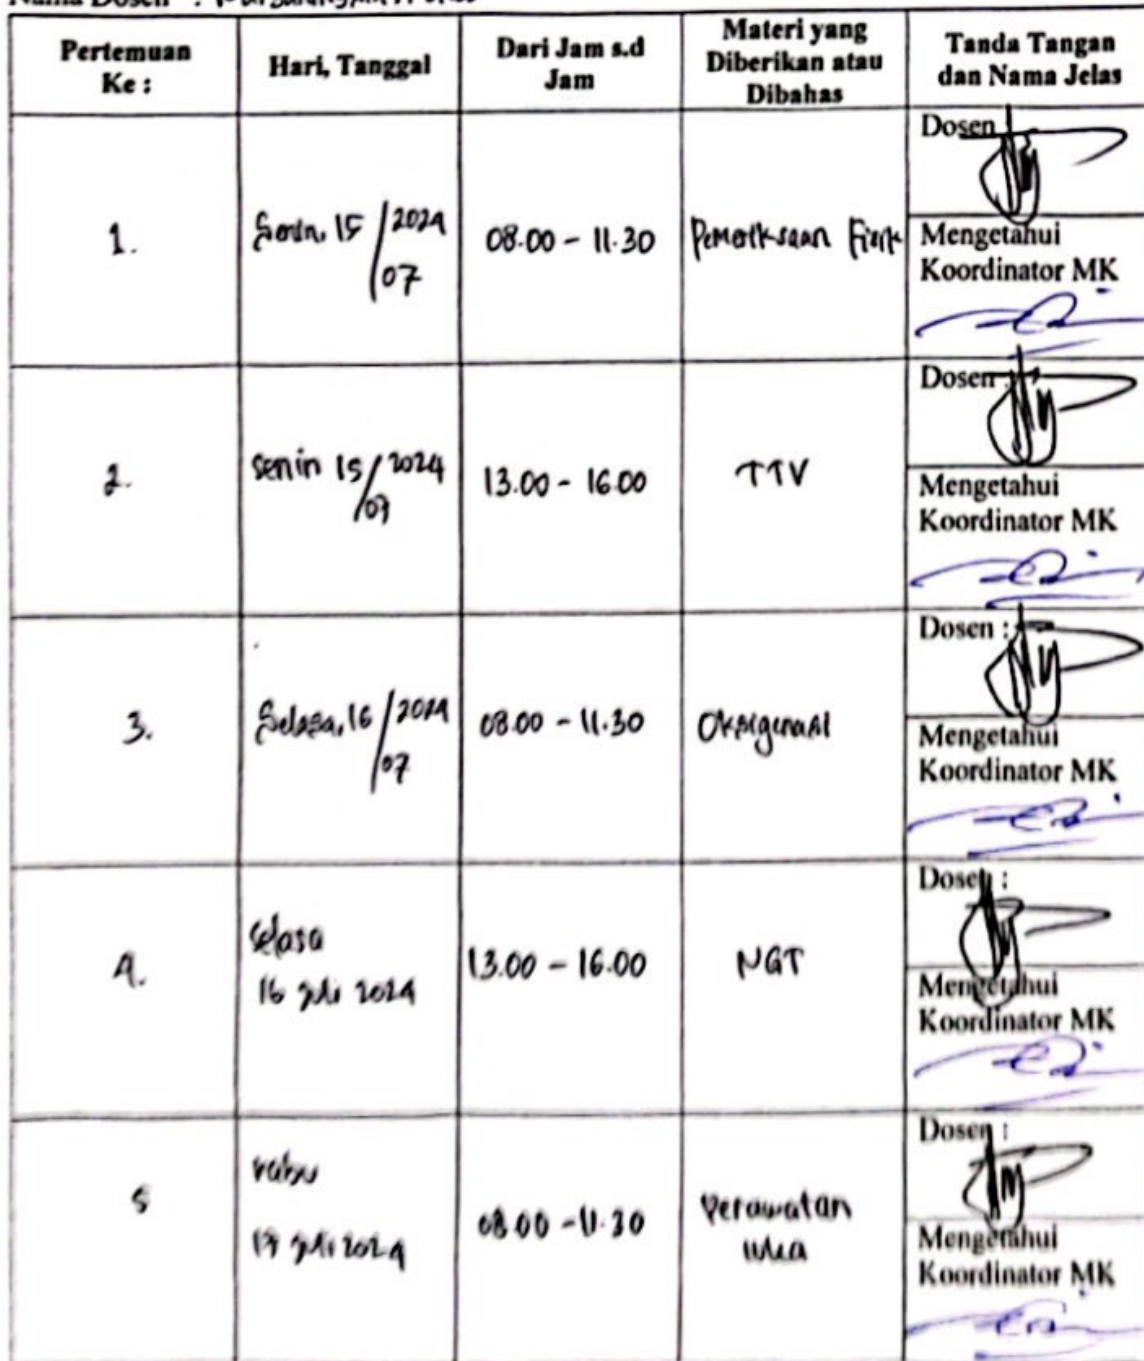 Nama Dosen :
Pertemuan Ke :
Hari, Tanggal
Dari Jam s.d Jam
Materi yang Diberikan atau Dibahas
Tanda Tangan dan Nama Jelas
1.
Senin, 15/07 2024
08.00 - 11.30
Pemeriksaan Fisik
Dosen
Mengetahui
Koordinator MK
2.
Senin 15/07 2024
13.00 - 16.00
TTV
Dosen :
Mengetahui
Koordinator MK
3.
Selasa, 16/07 2024
08.00 - 11.30
Oksigenasi
Dosen :
Mengetahui
Koordinator MK
4.
Selasa
16 Juli 2024
13.00 - 16.00
NGT
Dosen :
Mengetahui
Koordinator MK
5
rabu
17 Juli 2024
08.00 - 11.30
Perawatan
luka
Dosen :
Mengetahui
Koordinator MK